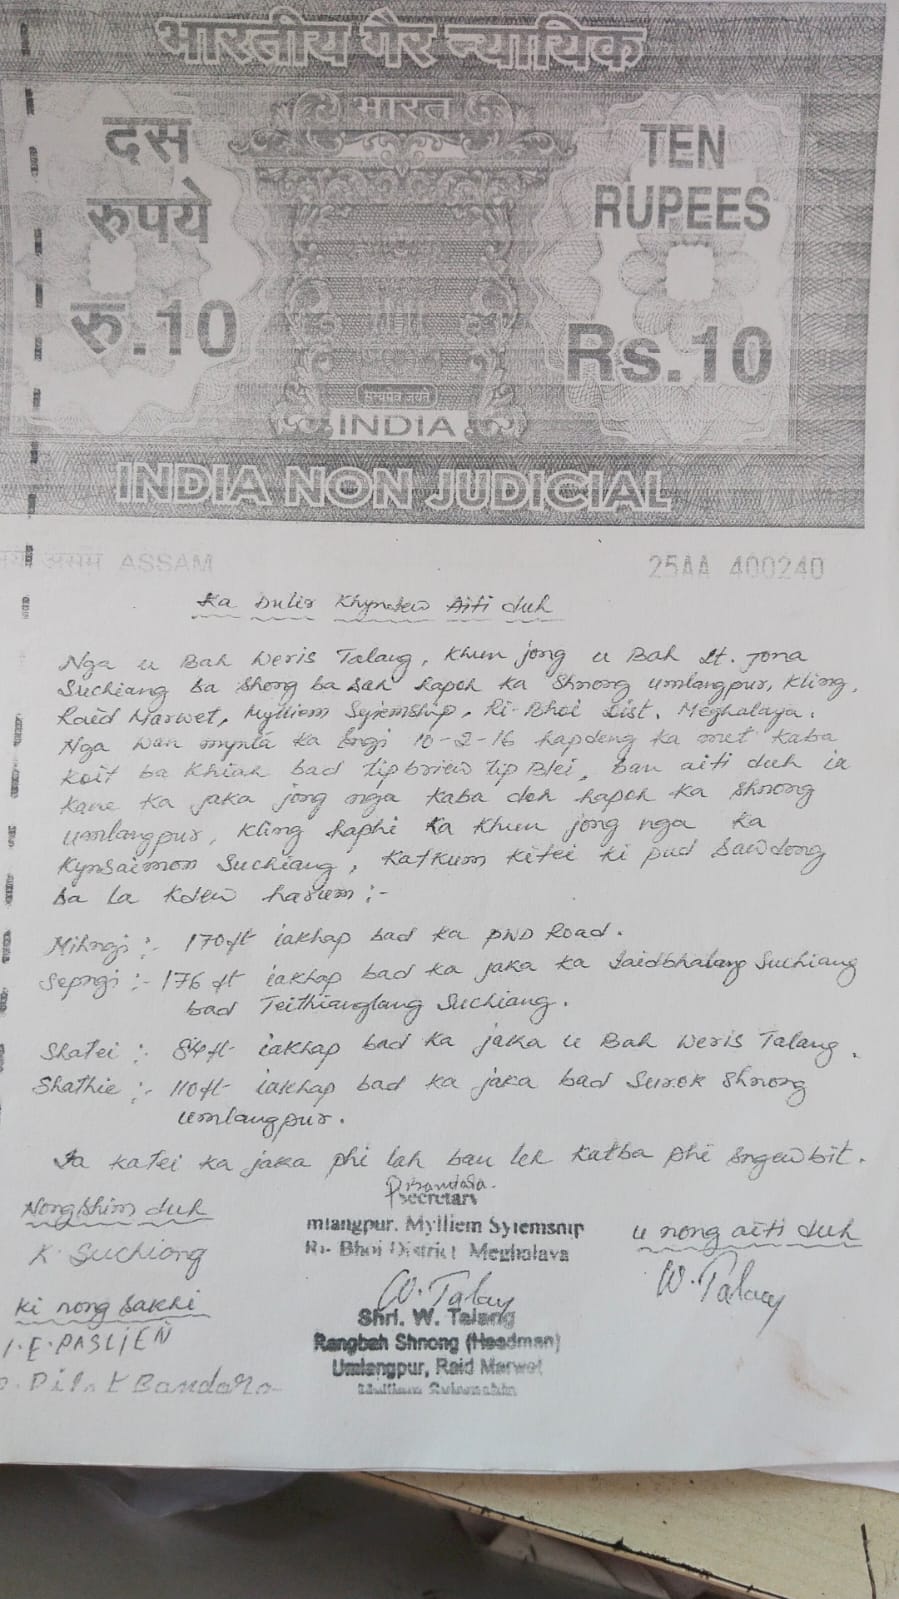 भारतीय गैर न्यायिक
भारत
दस
रुपये
रु.10
TEN
RUPEES
Rs.10
सत्यमेव जयते
INDIA
INDIA NON JUDICIAL
असम ASSAM
25AA 400240
Ka Dulir Khyndew Aiti duh
Nga u Bah Weris Talang, Khun jong u Bah Lt. Jona
Suchiang ba shong ba sah hapoh ka Shnong Umlangpur, Kling,
Raid Marwet, Mylliem Syiemship, Ri-Bhoi Dist. Meghalaya.
Nga wan mynta ka sngi 10-2-16 hapdeng ka met kaba
koit ba khiah bad tipbriew tip Blei, ban aiti duh ia
kane ka jaka jong nga kaba don hapoh ka Shnong
Umlangpur, Kling haphi ka khun jong nga ka
Kynsaimon Suchiang, katkum kitei ki pud sawdong
ba la kdew harum :-
Mihngi :- 170ft iakhap bad ka PWD Road.
Sepngi :- 176 ft iakhap bad ka jaka ka Iaidbhalang Suchiang
bad Teithianglang Suchiang.
Shatei :- 84ft iakhap bad ka jaka u Bah Weris Talang.
Shathie :- 110ft iakhap bad ka jaka bad Surok Shnong
Umlangpur.
Ia katei ka jaka phi lah ban leh katba phi sngewbit.
Nongshim duh
K. Suchiang
Secretary
mlangpur, Mylliem Syiemship
Ri- Bhoi District Meghalaya
u nong aiti duh
W. Talang
ki nong sakhi
1. E. PASLIEN
W. Talang
Shri. W. Talang
Rangbah Shnong (Headman)
Umlangpur, Raid Marwet
Mylliem Syiemship